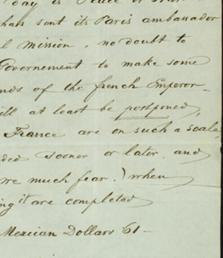 day is Peace or War
has sent its Paris ambassador
l mission, no doubt to
Governement to make some
nds of the french Emperor—
ill at least be postponed,
France are on such a scale
ded sooner or later, and
we much fear,) when
ing it are completed
Mexican Dollars 61—